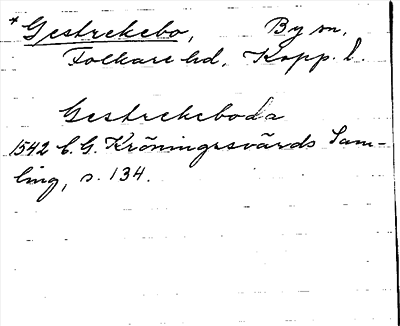 *Gestrekebo, By sn,
Folkare hd, Kopp. l.
Gestrekeboda
1542 C. G. Kröningssvärds Sam-
ling, s. 134.